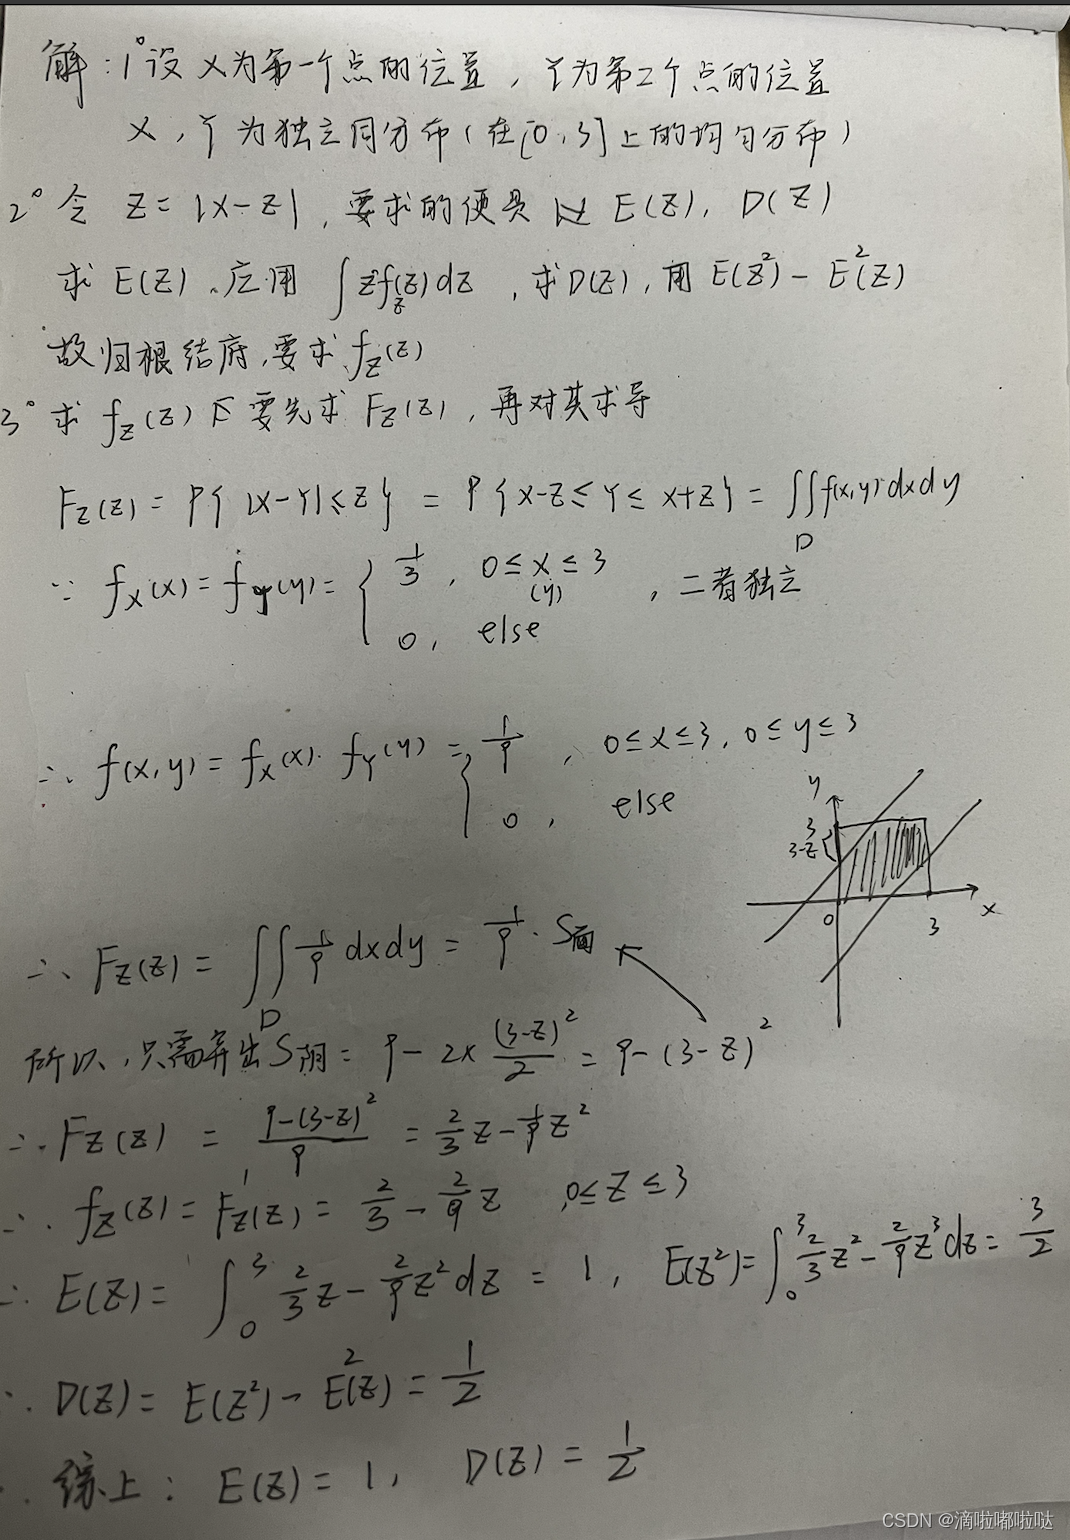 解：1° 设 X为第一个点的位置，Y为第二个点的位置
X，Y 为独立同分布（在[0，3]上的均匀分布）
2° 令 Z=|X-Z|，要求的便是 E(Z)，D(Z)
求 E(Z)，应用 ∫zf_Z(z)dz，求D(Z)，用 E(Z²)-E²(Z)
故归根结底，要求 f_Z(z)
3° 求 f_Z(z) 要先求 F_Z(z)，再对其求导
F_Z(z) = P{|X-Y|≤Z} = P{X-Z≤Y≤X+Z} = ∬_D f(x,y)dxdy
∵ f_X(x) = f_Y(y) = { 1/3，0≤x≤3 (y)
0，else
，二者独立
∴ f(x,y) = f_X(x)·f_Y(y) = { 1/9，0≤x≤3，0≤y≤3
0，else
y
3
3-z
0
3
x
∴ F_Z(z) = ∬_D 1/9 dxdy = 1/9·S阴
所以，只需算出S阴 = 9-2×(3-z)²/2 = 9-(3-z)²
∴ F_Z(z) = (9-(3-z)²)/9 = 2/3 z - 1/9 z²
∴ f_Z(z) = F_Z'(z) = 2/3 - 2/9 z ，0≤z≤3
∴ E(Z) = ∫₀³ 2/3 z - 2/9 z² dz = 1，E(Z²) = ∫₀³ 2/3 z² - 2/9 z³ dz = 3/2
∴ D(Z) = E(Z²) - E²(Z) = 1/2
∴ 综上：E(Z) = 1，D(Z) = 1/2
CSDN @滴啦嘟啦哒